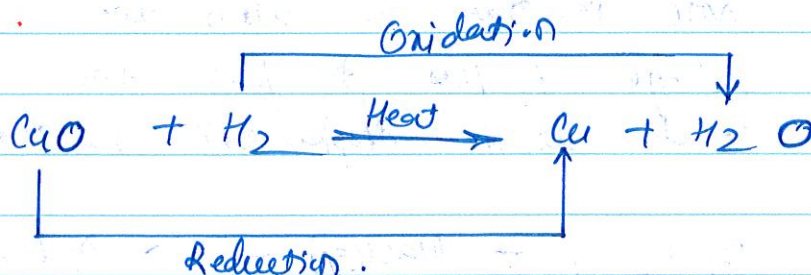 Oxidation
CuO + H2 Heat Cu + H2O
Reduction.